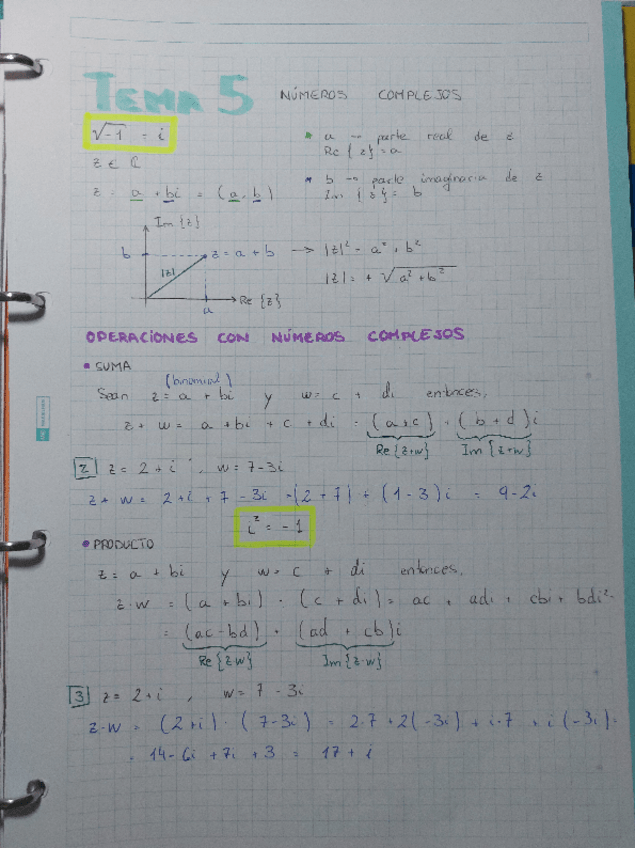 TEMA 5 NÚMEROS COMPLEJOS
√-1 = i
z ∈ ℂ
z = a + bi = (a, b)
• a → parte real de z
Re{z} = a
• b → parte imaginaria de z
Im{z} = b
Im{z}
b
z = a + b → |z|² = a² + b²
|z|
|z| = + √a² + b²
Re{z}
a
OPERACIONES CON NÚMEROS COMPLEJOS
• SUMA
(binomial)
Sean z = a + bi y w = c + di entonces,
z + w = a + bi + c + di = (a + c) + (b + d)i
Re{z+w} Im{z+w}
2 z = 2 + i, w = 7-3i
z + w = 2 + i + 7 - 3i = (2 + 7) + (1 - 3)i = 9-2i
i² = -1
• PRODUCTO
z = a + bi y w = c + di entonces,
z·w = (a + bi) · (c + di) = ac + adi + cbi + bdi² =
= (ac - bd) + (ad + cb)i
Re{z·w} Im{z·w}
3 z = 2 + i, w = 7 - 3i
z·w = (2+i) · (7-3i) = 2·7 + 2(-3i) + i·7 + i(-3i) =
= 14 - 6i + 7i + 3 = 17 + i